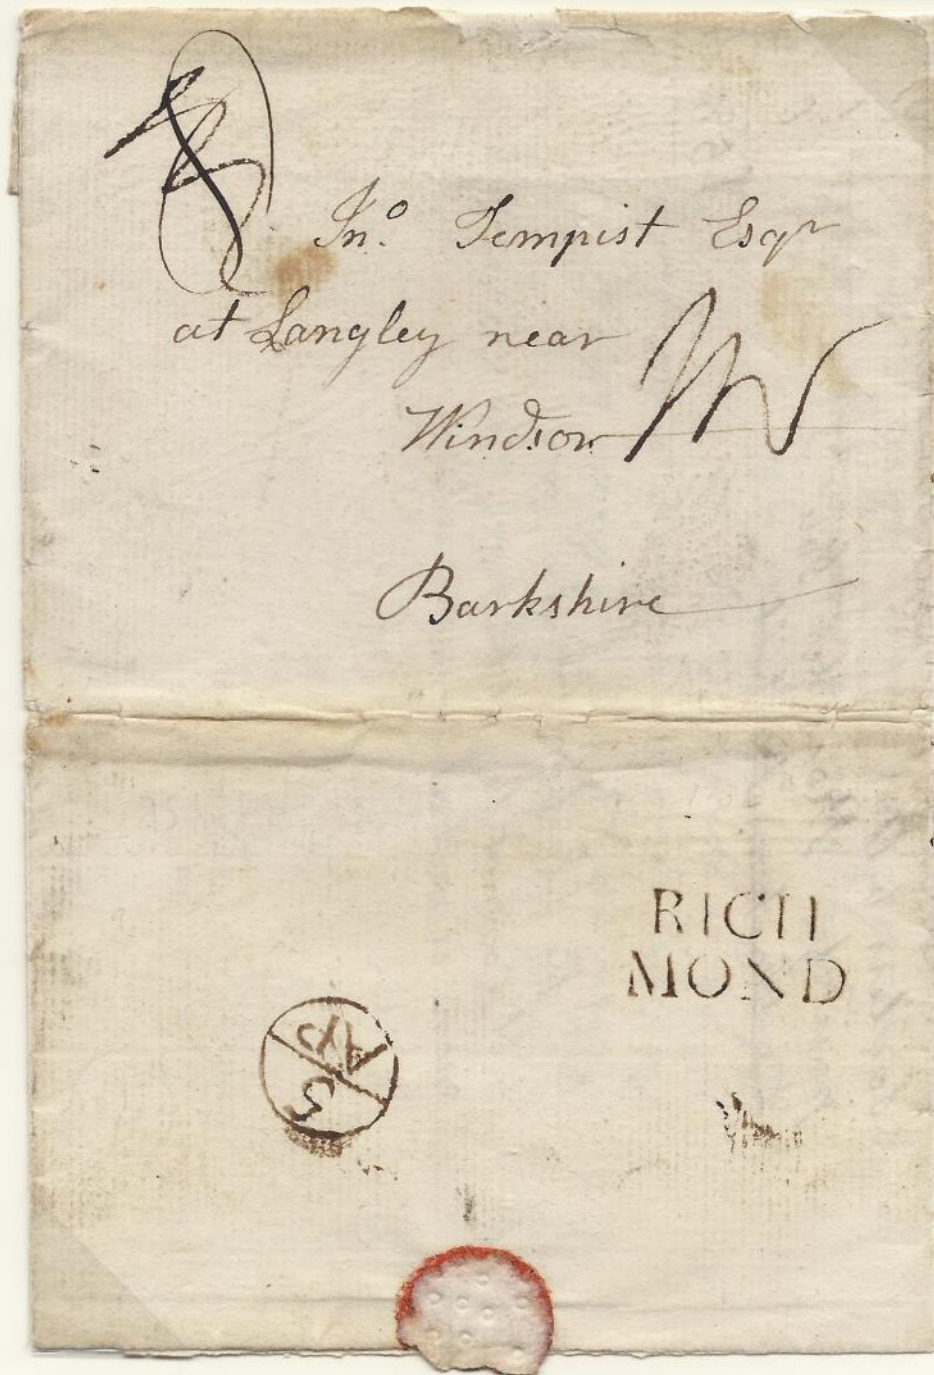 Jnº. Tempist Esqr
at Langley near
Windsor
Barkshire
RICH
MOND
AP
5